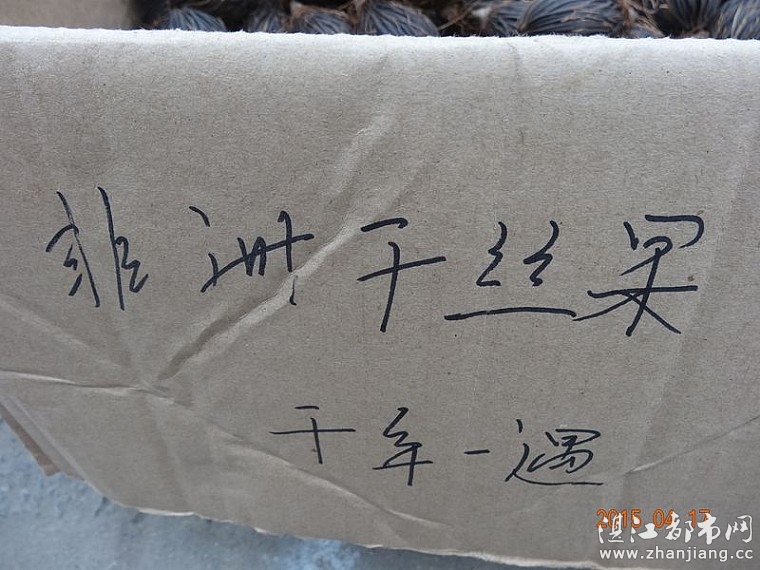 非洲千丝果
千年一遇
2015 04 17
湛江都市网
www.zhanjiang.cc